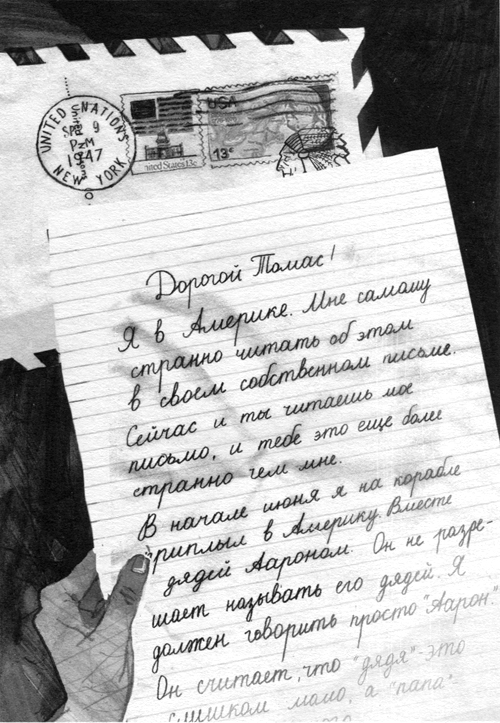 UNITED NATIONS
SEP 9
PzM
1947
NEW YORK
USA
United States 13c
13c
Дорогой Томас!
Я в Америке. Мне самому
странно читать об этом
в своем собственном письме.
Сейчас и ты читаешь мое
письмо, и тебе это еще более
странно чем мне.
В начале июня я на корабле
приплыл в Америку. Вместе
дядей Аароном. Он не разре-
шает называть его дядей. Я
должен говорить просто "Аарон."
Он считает, что "дядя"-это
слишком мало, а "папа"